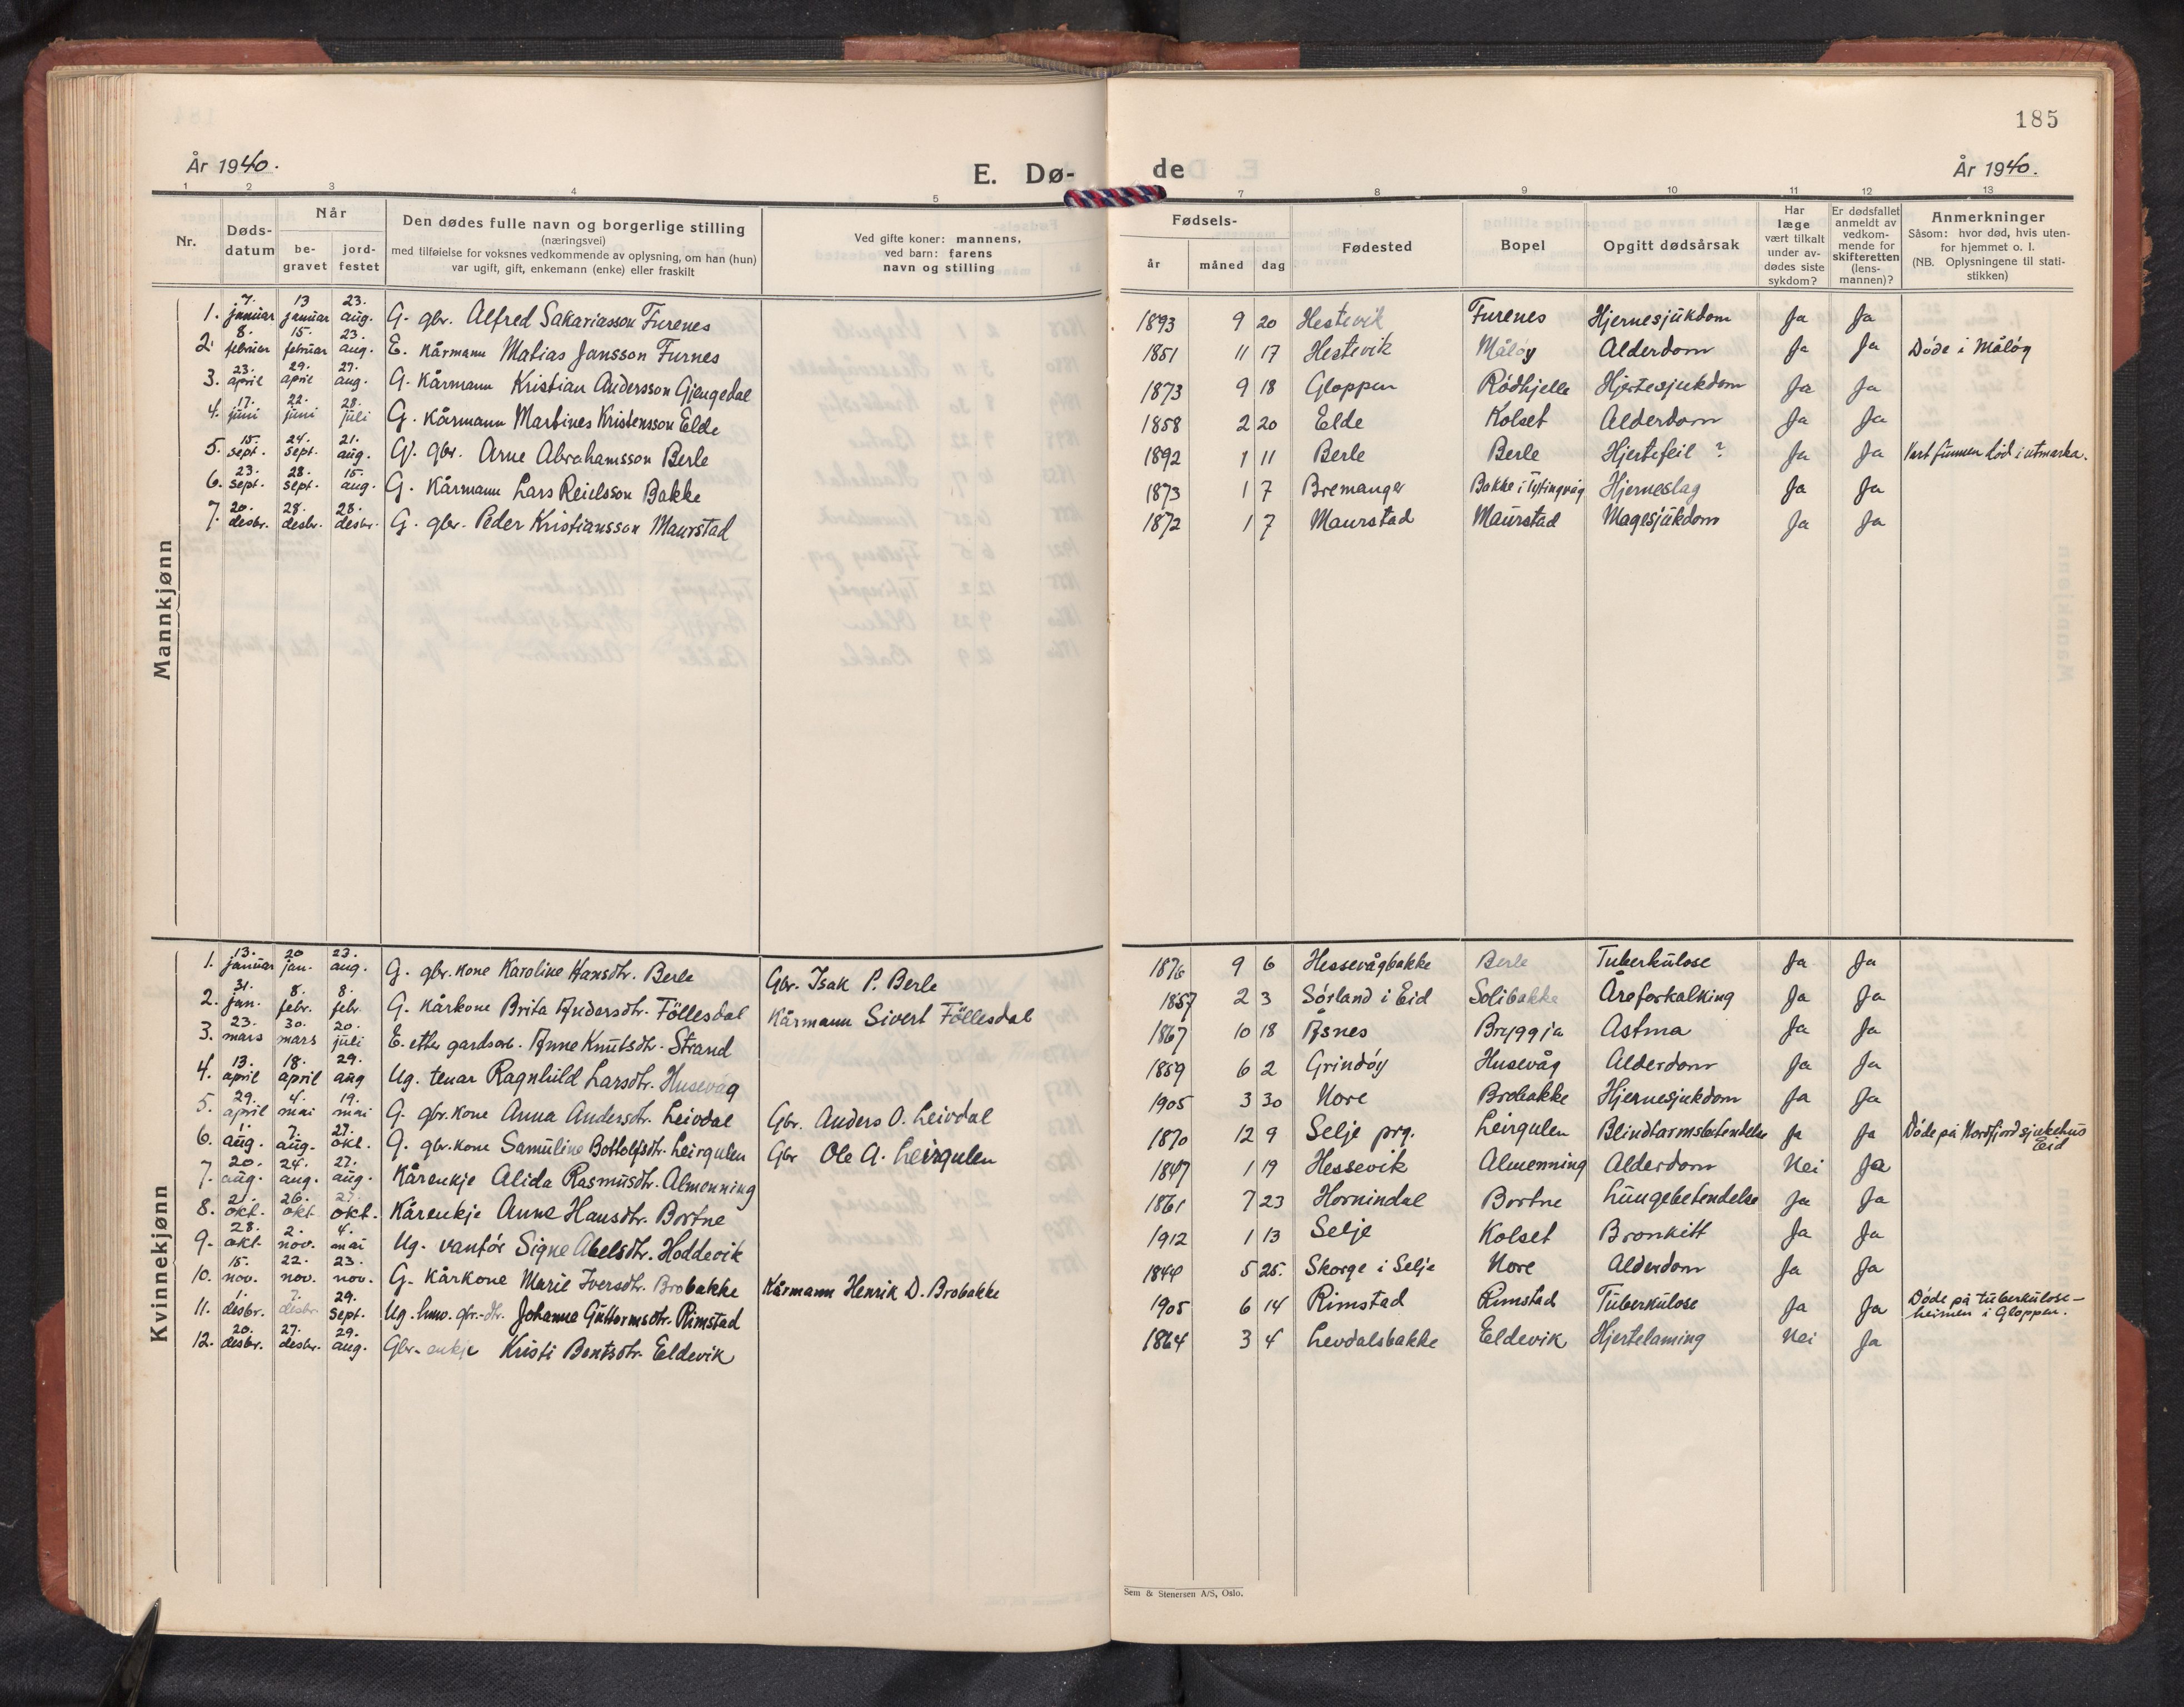 185
År 1940.
E. Dø-
de
År 1940.
1 2 3 4 5 7 8 9 10 11 12 13
Nr.
Døds-
datum
Når
be-
gravet
jord-
festet
Den dødes fulle navn og borgerlige stilling
(næringsvei)
med tilføielse for voksnes vedkommende av oplysning, om han (hun)
var ugift, gift, enkemann (enke) eller fraskilt
Ved gifte koner: mannens,
ved barn: farens
navn og stilling
Fødsels-
år måned dag
Fødested
Bopel
Opgitt dødsårsak
Har
læge
vært tilkalt
under av-
dødes siste
sykdom?
Er dødsfallet
anmeldt av
vedkom-
mende for
skifteretten
(lens-
mannen)?
Anmerkninger
Såsom: hvor død, hvis uten-
for hjemmet o. l.
(NB. Oplysningene til stati-
stikken)
Mannkjønn
1. 7. januar 13 januar 23. aug. G. gbr. Alfred Sakariasson Furenes 1893 9 20 Hestevik Furenes Hjernesjukdom Ja Ja
2. 8. februar 15. februar 23. aug. E. Kårmann Matias Jansson Furnes 1851 11 17 Hestevik Måløy Alderdom Ja Ja Døde i Måløy
3. 23. april 29. april 27. aug. G. Kårmann Kristian Andersson Gjengedal 1873 9 18 Gloppen Rødhjelle Hjertesjukdom Ja Ja
4. 17. juni 22. juni 28. juli G. Kårmann Martines Kristensson Elde 1858 2 20 Elde Kolset Alderdom Ja Ja
5. 15. sept. 24. sept. 21. aug. G. gbr. Arne Abrahamsson Berle 1892 1 11 Berle Berle Hjertefeil ? Ja Ja Vart funnen död i utmarka.
6. 23. sept. 28. sept. 15. aug. G. Kårmann Lars Reielsson Bakke 1873 1 7 Bremanger Bakke i Tytingvåg Hjerneslag Ja Ja
7. 20. desbr. 28. desbr. 28. desbr. G. gbr. Peder Kristiansson Maurstad 1872 1 7 Maurstad Maurstad Magesjukdom Ja Ja
Kvinnekjønn
1. 13. januar 20 jan. 23. aug. G. gbr. kone Karoline Hansdtr. Berle Gbr. Isak P. Berle 1876 9 6 Hessevågbakke Berle Tuberkulose Ja Ja
2. 31. jan. 8. febr. 8. febr G. Kårkone Brita Andersdtr. Föllesdal Kårmann Sivert Föllesdal 1857 2 3 Sørland i Eid Solibakke Åreforkalking Ja Ja
3. 23. mars 30. mars 20. juli E. etter gardsarb. Anne Knutsdtr. Strand 1867 10 18 Åsnes Bryggja Astma Ja Ja
4. 13. april 18. april 29. aug Ug. tenar Ragnhild Larsdtr. Husevåg 1859 6 2 Grindøy Husevåg Alderdom Ja Ja
5. 29. april 4. mai 19. mai G. gbr. kone Anna Andersdtr. Leirdal Gbr. Anders O. Leirdal 1905 3 30 Nore Brobakke Hjernesjukdom Ja Ja
6. 1. aug. 7. aug. 27. okt. G. gbr. kone Samuline Bottolfsdtr. Leirgulen Gbr Ole A. Leirgulen 1870 12 9 Selje prg. Leirgulen Blindtarmsbetendelse Ja Ja Døde på Nordfjord sjukehus Eid
7. 20. aug. 24. aug. 27. aug. Kårenkje Alida Rasmusdtr. Almenning 1847 1 19 Hessevik Almenning Alderdom Nei Ja
8. 21. okt. 26. okt 27. okt. Kårenkje Anne Hansdtr. Bortne 1861 7 23 Hornindal Bortne Lungebetendelse Ja Ja
9. 28. okt. 2. nov. 4. mai Ug. vanför Signe Abelsdtr. Hoddevik 1912 1 13 Selje Kolset Bronkitt Ja Ja
10. 15. nov. 22. nov. 23. nov. G. Kårkone Marie Iversdtr. Brobakke Kårmann Henrik D. Brobakke 1844 5 25. Skorge i Selje Nore Alderdom Ja Ja
11. 1. desbr. 7. desbr. 29. sept. Ug. hmv. gbr.-dtr. Johanna Guttormsdtr. Rimstad 1905 6 14 Rimstad Rimstad Tuberkulose Ja Ja Døde på tuberkulose-
heimen i Gloppen.
12. 20. desbr. 27. desbr. 29. aug. Gbr. enkje Kristi Bentsdtr. Eldevik 1864 3 4 Levdalsbakke Eeldevik Hjertelaming Nei Ja
Sem & Stenersen A/S, Oslo.